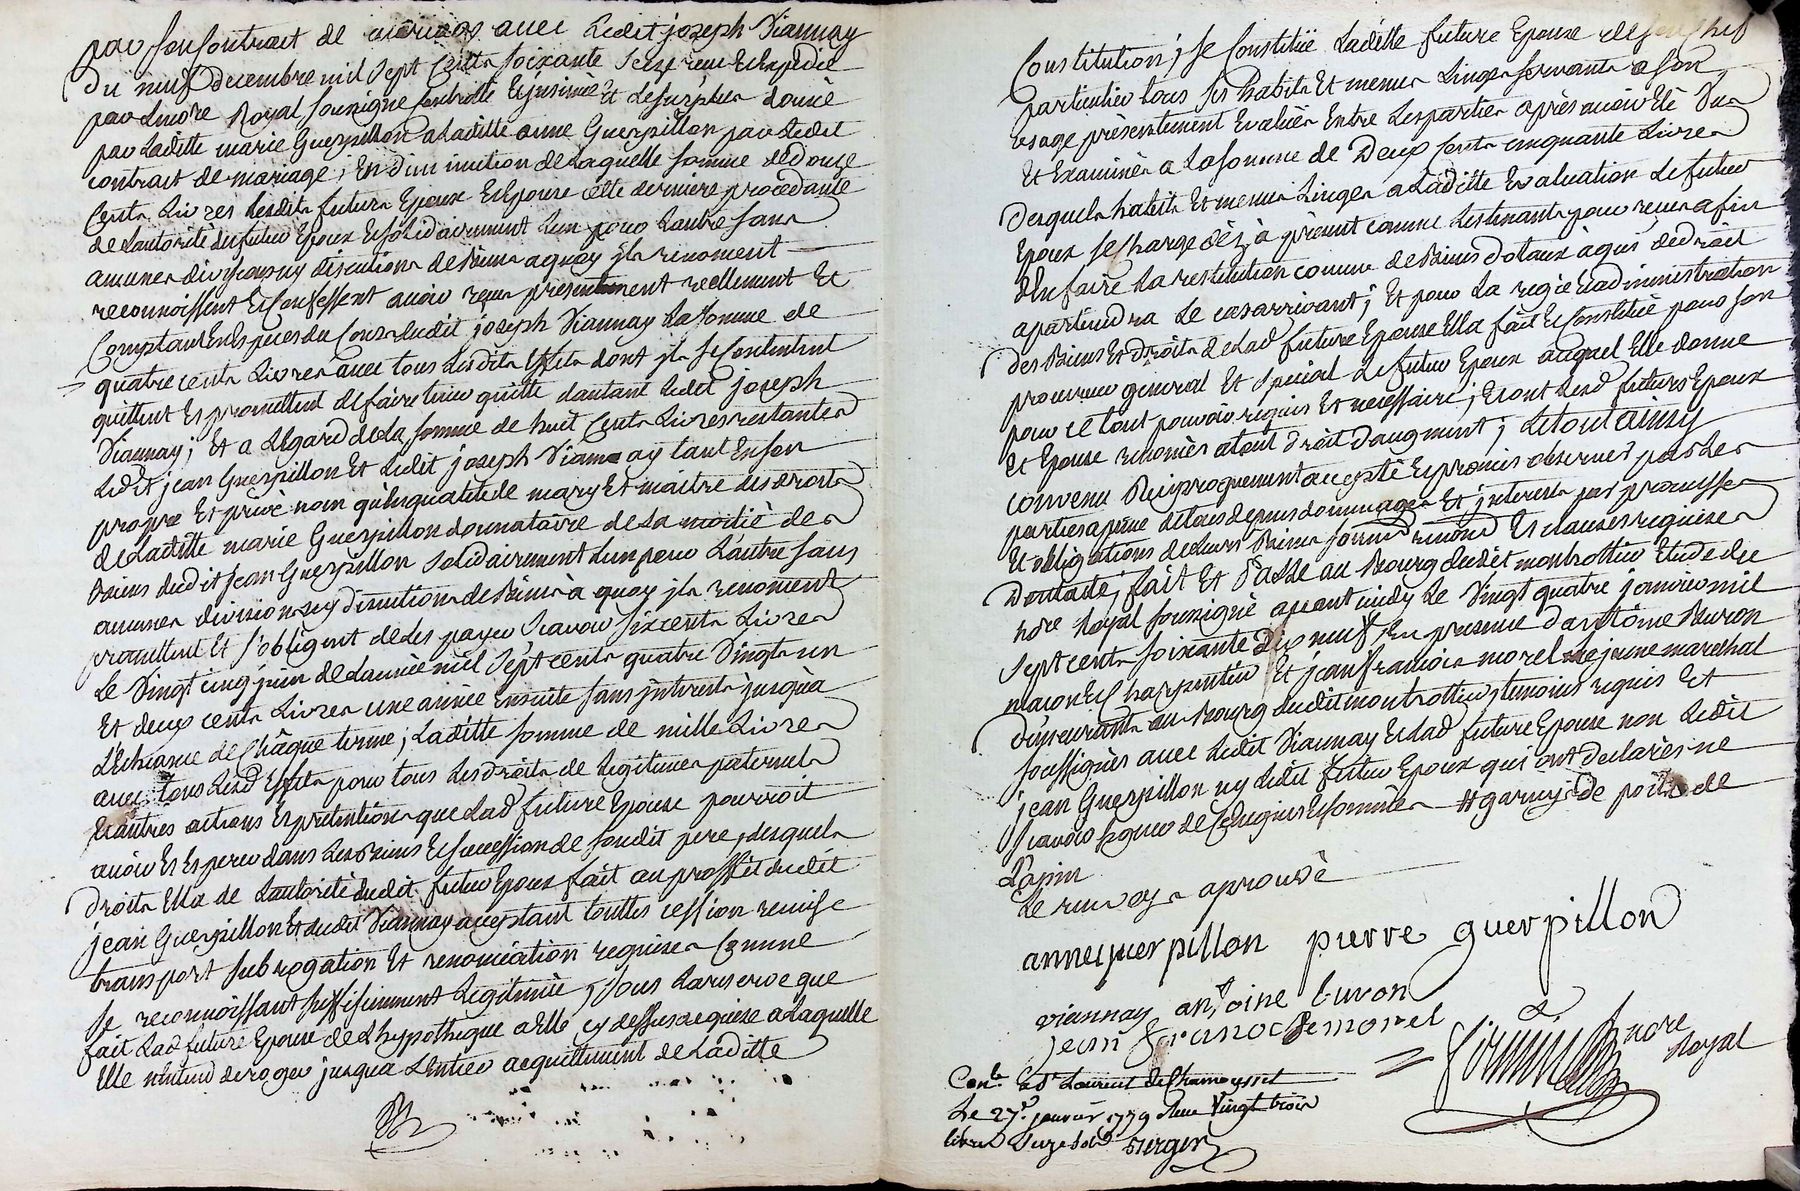 par son contract de mariage avec Ledit joseph Viannay
Du neuf decembre mil Sept Cents soixante Seize reçu Et Expedié
par Lnore Royal soussigné controllé Et jnsinüé Et Le surplus donné
par Laditte marie Guerpillon a Laditte anne Guerpillon par Ledit
contract de mariage ; En diminution de Laquelle somme de Douze
Cents Livres Lesdits futurs Epoux Et Epouse cette derniere procedante
de Lautorité du futur Epoux Et solidairement Lun pour Lautre sans
aucunes division ny discutions de Biens a quoy jls renoncent
reconnoissent Et Confessent avoir reçu présentement réellement Et
Comptant En Espèces du Cours dudit joseph Viannay La somme de
quatre cents Livres avec tous Lesdits Effets dont jls se Contentent
quittent Et promettent de faire tenir quitte dautant Ledit joseph
Viannay ; Et a Légard de La somme de huit Cents Livres restantes
Ledit jean Guerpillon Et Ledit joseph Viannay tant En son
propre Et privé nom qu'En qualité de mary Et maitre des droits
de Laditte marie Guerpillon donnataire de La moitié des
Biens dudit jean Guerpillon solidairement Lun pour Lautre sans
aucunes divisions ny discutions de Biens à quoy jls renoncent
promettent Et s'obligent de Les payer Scavoir six cents Livres
Le Vingt cinq juin de Lannée mil Sept cents quatre Vingts un
Et deux cents Livres une année Ensuite sans jnterests jusqu'a
LEcheance de Châque terme ; Laditte somme de mille Livres
avec tous Lesd Effets pour tous Les droits de Legitimes paternels
Et autres actions Et prétentions que Lad future Epouse pourroit
avoir Et Esperer dans Les Biens Et succession de soudit pere, desquels
Droits Elle de Lautorité dudit futur Epoux fait au proffit dudit
jean Guerpillon Et dudit Viannay acceptant touttes cession remise
transport subrogation Et renonciation requises Comme
se reconnoissant suffisament Legitimée, sous La réserve que
fait Lad future Epouse de Lhypothèque a Elle cy dessus acquise a Laquelle
Elle n'Entend deroger jusqua LEntier acquittement de Laditte
Constitution ; se Constitüe Laditte future Epouse de son chef
particulier tous ses habits Et menus Linges servants a son
usage présentement Evalués Entre Les parties après avoir Eté Vus
Et Examinés a La somme de Deux Cents cinquante Livres
Desquels habits Et menus Linges a Laditte Evaluation Le futur
Epoux se Charge dèz à présent comme Les tenants pour reçus afin
d'En faire La restitution comme de Biens dotaux à qui de droit
apartiendra Le cas arrivant ; Et pour La régie Et administration
des Biens Et droits de Lad future Epouse Elle fait Et Constitüe pour son
procureur general Et special Le futur Epoux auquel Elle donne
pour ce tout pouvoir requis Et necessaire ; Et ont Lesd futurs Epoux
Et Epouse renoncés a tout droit daugment ; Letout ainsy
convenu Reciproquement accepté Et promis observer par Les
parties a peine de tous depens dommages Et jnterests par promesses
Et obligations de Leurs Biens soumd renond Et clauses requises
Dont acte ; fait Et Passé au Bourg dudit montrottier Etude du
nore Royal soussigné avant midy Le Vingt quatre janvier mil
Sept cents soixante Dix neuf En presence dantoine Buron
maçon Et Charpentier Et jean francois morel Le jeune marechal
Demeurants au Bourg dudit montrottier, temoins requis Et
soussignés avec Ledit Viannay Et Lad future Epouse non Ledit
jean Guerpillon ny Ledit futur Epoux qui ont declarés ne
scavoir signer de Ce Enquis Et sommés # garnys de poils de
Lapin
Le renvoy aprouvé
anneguerpillon pierre guerpillon
viannay antoine buron
jean francoisemorel
nore
Royal
Conlé à St Laurent de Chamousset
Le 27e janvier 1779 Reçu Vingt trois
Livres Berger